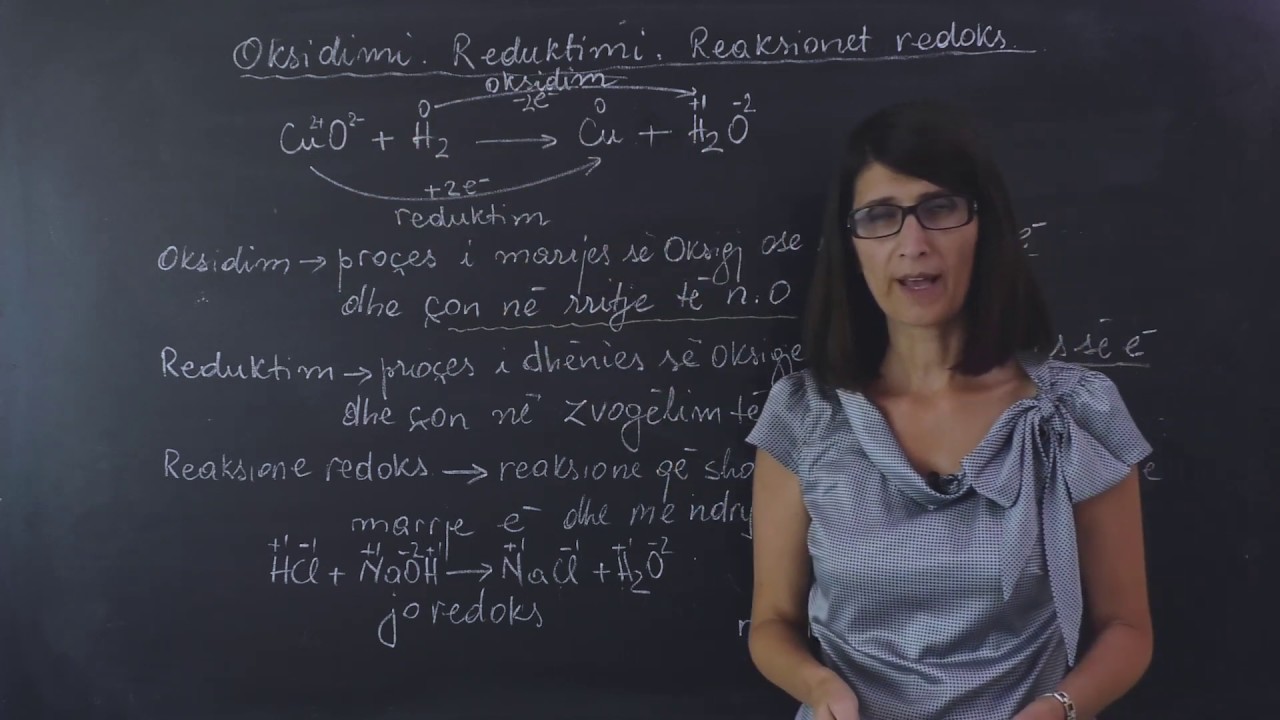 Oksidimi. Reduktimi. Reaksionet redoks.
oksidim
-2e⁻
Cu²⁺O²⁻ + H₂⁰ → Cu⁰ + H₂⁺¹O⁻²
+2e⁻
reduktim
Oksidim → proçes i marrjes së Oksigj ose e⁻
dhe çon në rritje të n.O
Reduktim → proçes i dhënies së oksige s së e⁻
dhe çon në zvogëlim të
Reaksione redoks → reaksione që sho e
marrje e⁻ dhe me ndry
H⁺¹Cl⁻¹ + Na⁺¹O⁻²H⁺¹ → Na⁺¹Cl⁻¹ + H₂⁺¹O⁻²
jo redoks